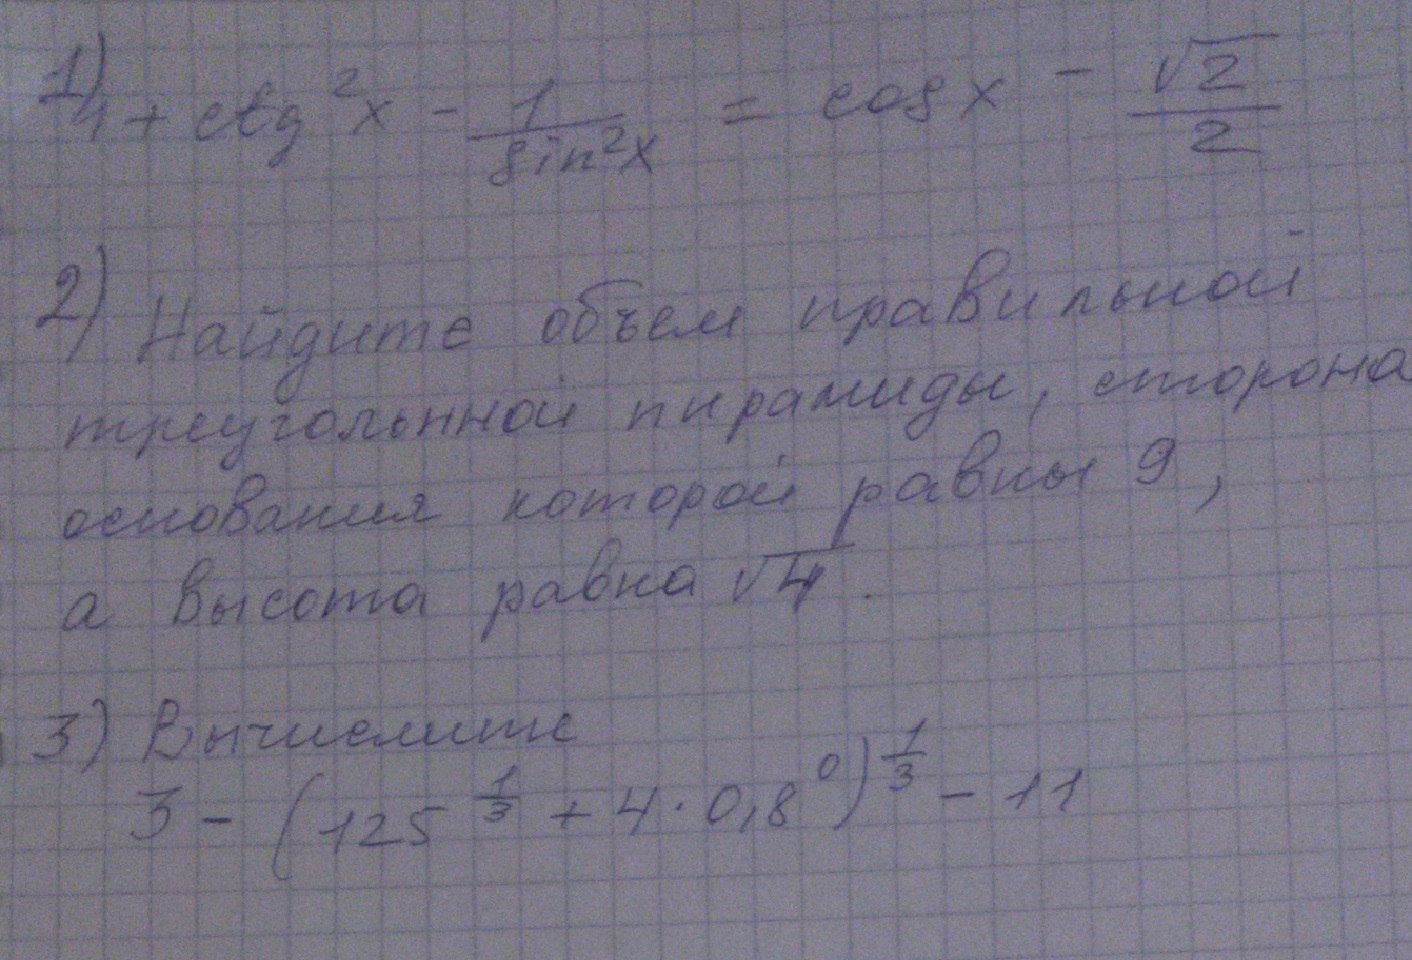 1)
4 + ctg²x - 1/sin²x = cos x - √2/2
2) Найдите объем правильной
треугольнной пирамиды, сторона
основания которой равны 9,
а высота равна √4.
3) Вычислите
3 - (125^(1/3) + 4 · 0,8⁰)^(1/3) - 11